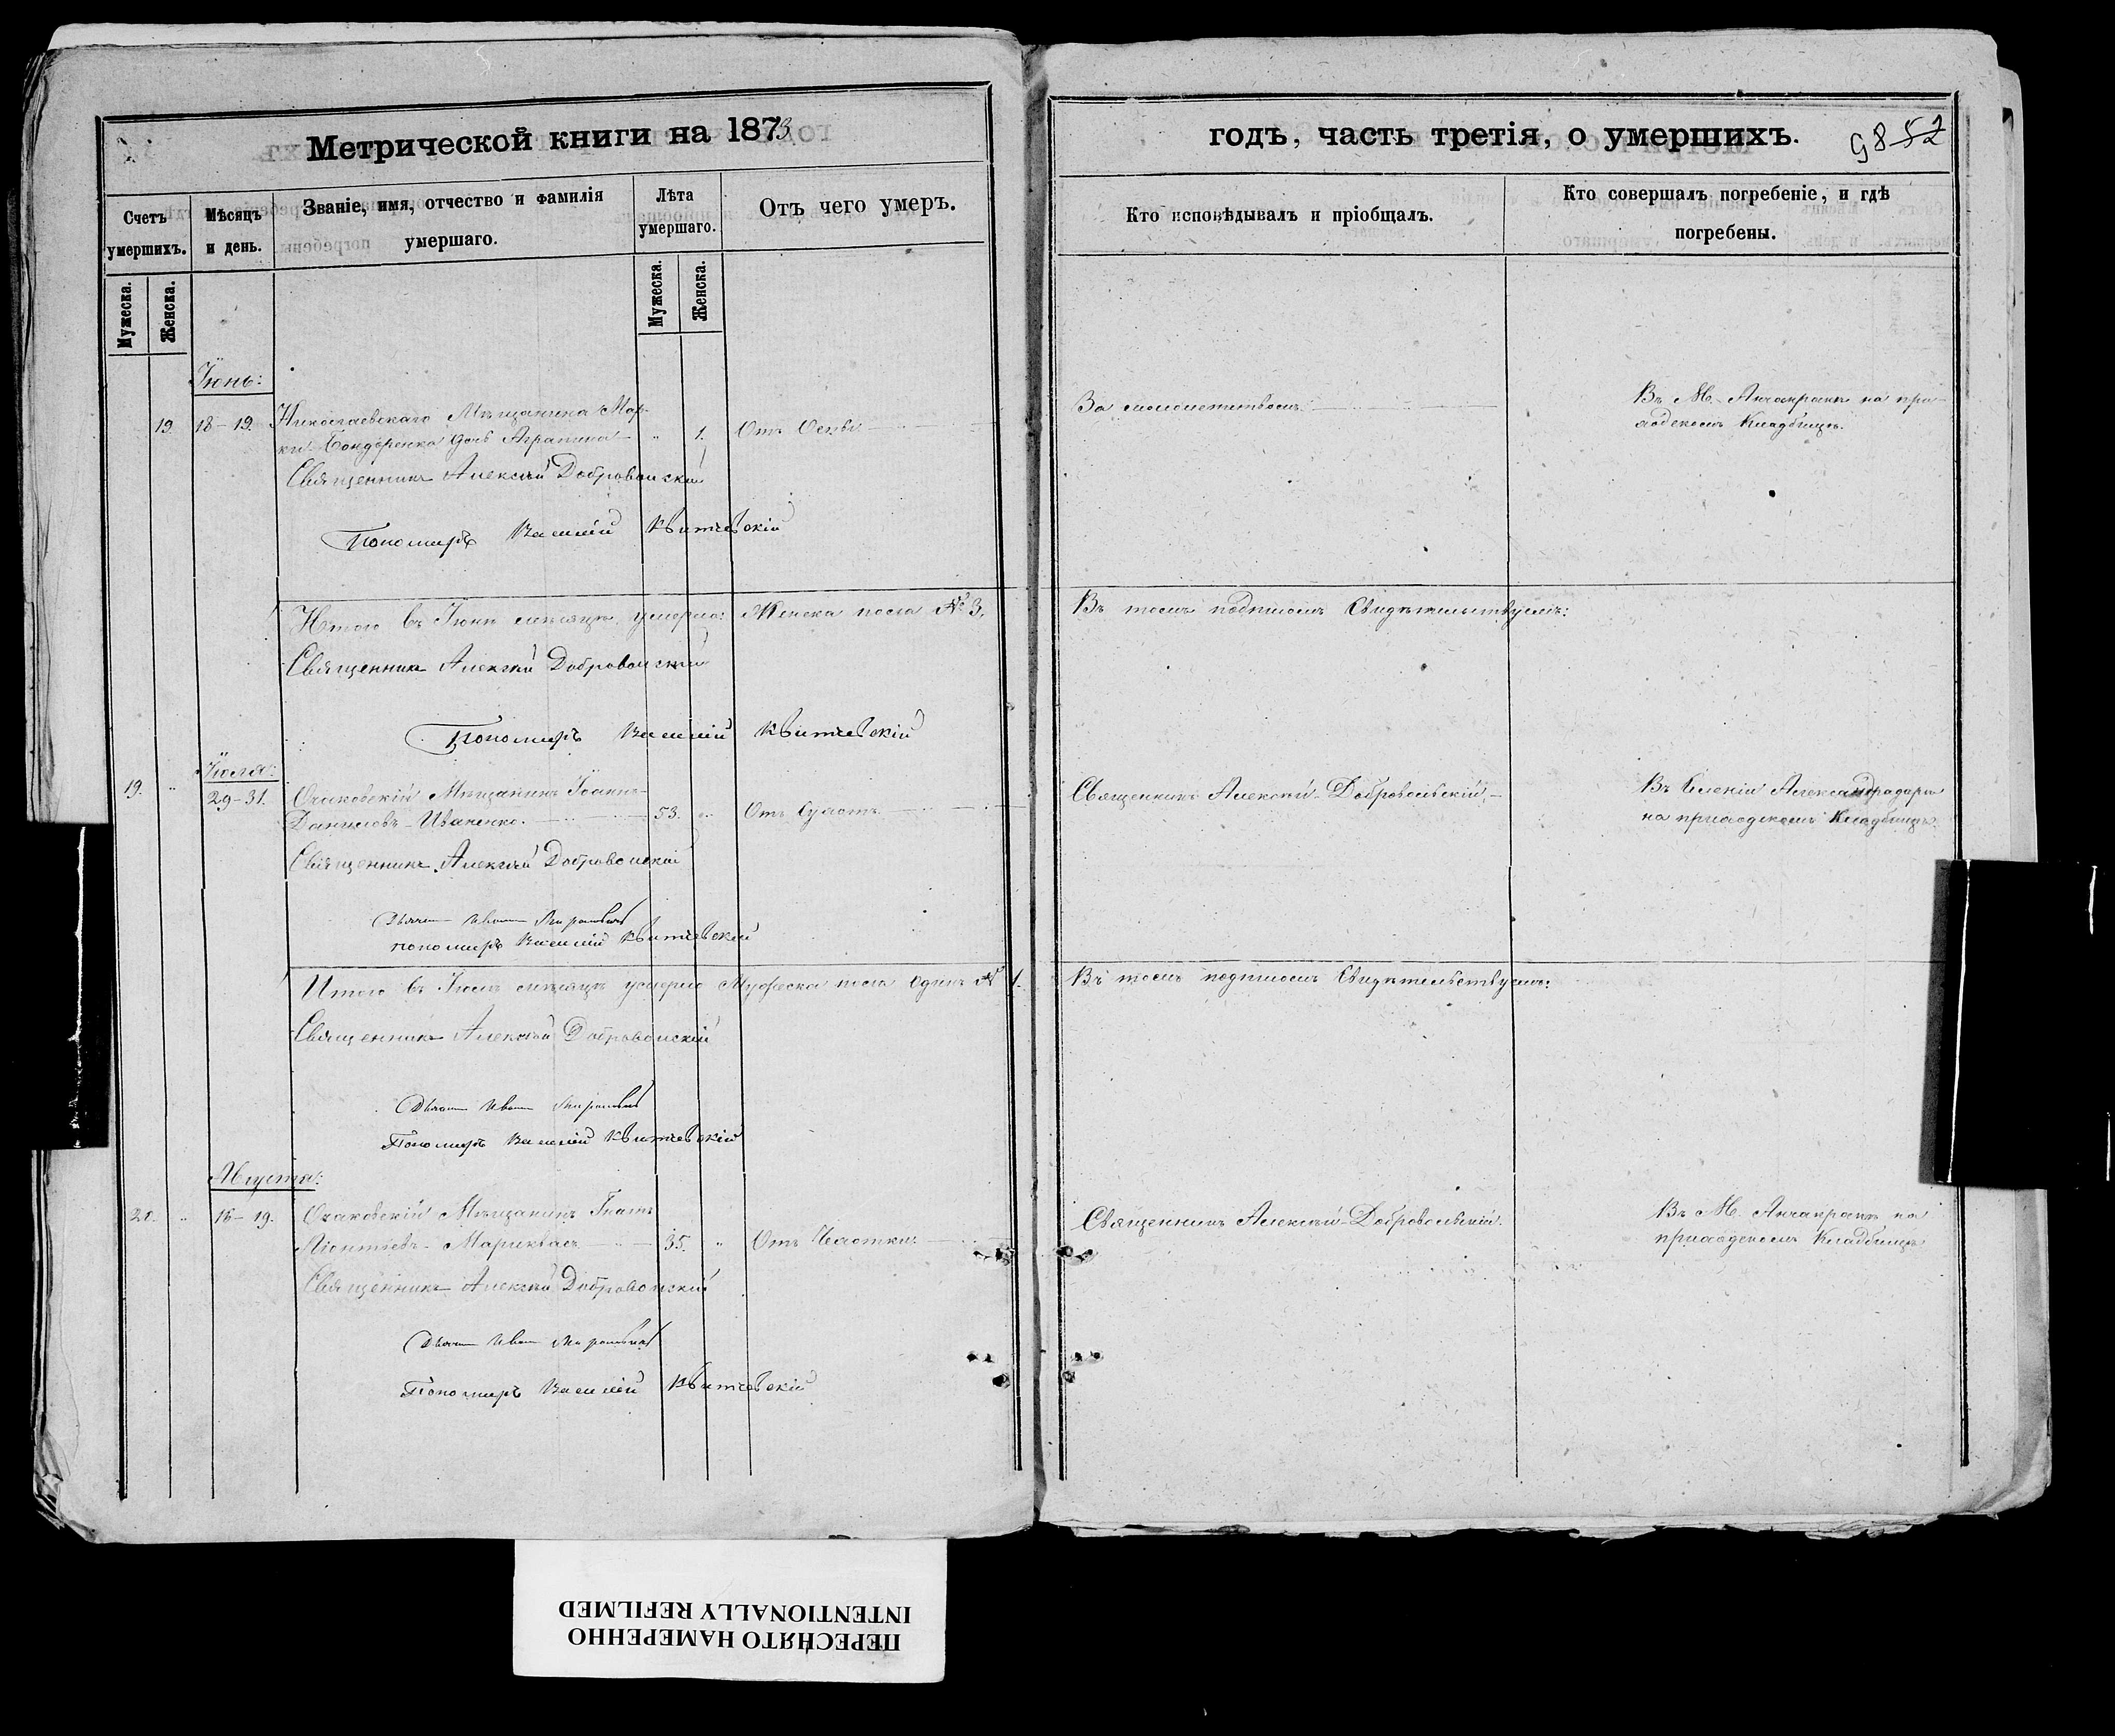 Метрической книги на 1873
Счетъ умершихъ.
Мѣсяцъ и день.
Званіе, имя, отчество и фамилія умершаго.
Лѣта умершаго.
Отъ чего умеръ.
Мужеска.
Женска.
Мужеска.
Женска.
Іюнь:
19. 18-19. Николаевскаго Мѣщанина Мар-
ки Бондаренка дочь Агрипина " 1. Отъ Оспы
Священникъ Алексѣй Добровольскій
Пономарь Василій Квитчевскій
Итого въ Іюнѣ мѣсяцѣ умерло: Женска пола № 3.
Священникъ Алексѣй Добровольскій
Пономарь Василій Квитчевскій
Іюля:
19. " 29-31. Очаковскій Мѣщанинъ Іоаннъ
Даниловъ Иваненко. 53. " Отъ
Священникъ Алексѣй Добровольскій
Дьячекъ Иванъ
пономарь Василій Квитчевскій
Итого въ Іюлѣ мѣсяцѣ умерло Мужеска пола одинъ № 1.
Священникъ Алексѣй Добровольскій
Дьячекъ Иванъ
Пономарь Василій Квитчевскій
Августа:
20. " 18-19. Очаковскій Мѣщанинъ Игнатъ
Леонтіевъ 35. " Отъ Чахотки
Священникъ Алексѣй Добровольскій
Дьячекъ Иванъ
Пономарь Василій Квитчевскій
годъ, часть третія, о умершихъ.
98 52
Кто исповѣдывалъ и пріобщалъ.
Кто совершалъ погребеніе, и гдѣ
погребены.
За малолетствомъ
Въ М. Анчакракъ на при-
ходскомъ Кладбищѣ.
Въ томъ подписомъ Свидѣтельствуемъ:
Священникъ Алексѣй Добровольскій
Въ Селеніи Александродаръ
на приходскомъ Кладбищѣ.
Въ томъ подписомъ Свидѣтельствуемъ:
Священникъ Алексѣй Добровольскій.
Въ М. Анчакракъ на
приходскомъ Кладбищѣ
ПЕРЕСНЯТО НАМЕРЕННО
INTENTIONALLY REFILMED